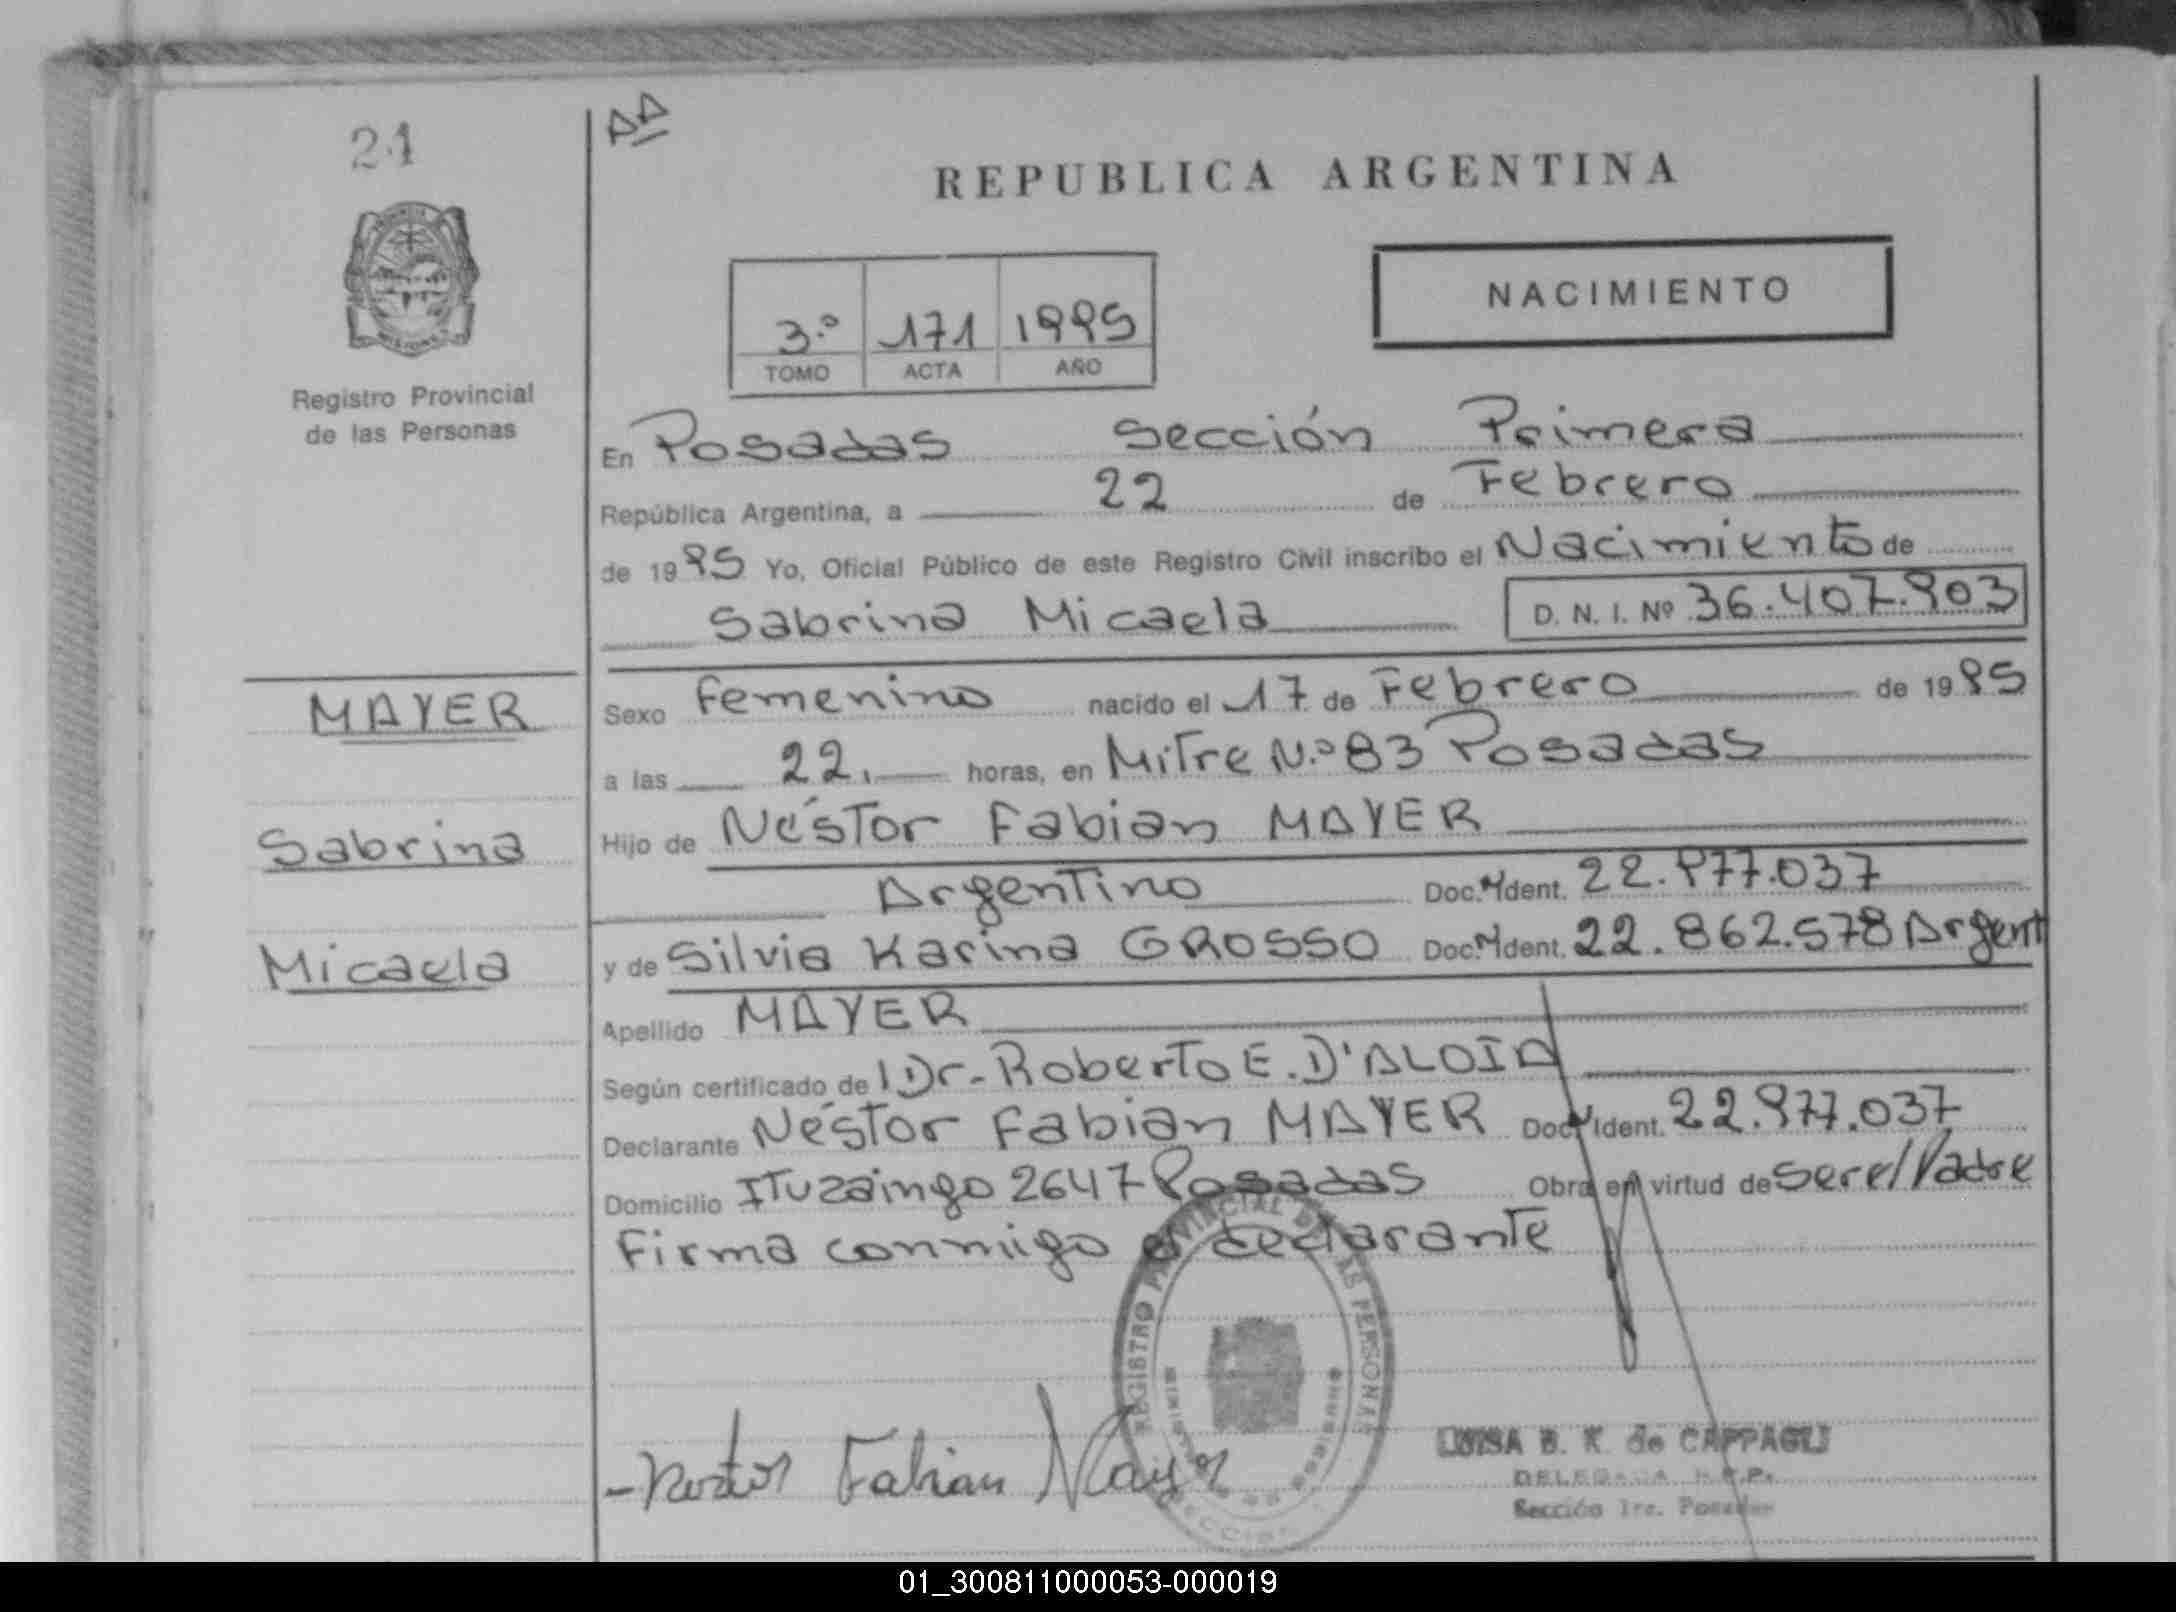 21
AA
REPUBLICA ARGENTINA
NACIMIENTO
3.º 171 1995
TOMO ACTA AÑO
Registro Provincial
de las Personas
En Posadas sección Primera
República Argentina, a 22 de Febrero
de 1995 Yo, Oficial Público de este Registro Civil inscribo el Nacimiento de
Sabrina Micaela D. N. I. Nº 36.407.903
MAYER
Sexo Femenino nacido el 17 de Febrero de 1995
a las 22. horas, en Mitre N.º 83 Posadas
Sabrina
Hijo de Néstor Fabian MAYER
Argentino Doc. Ident. 22.977.037
Micaela
y de Silvia Karina GROSSO Doc. Ident. 22.862.578 Argent
Apellido MAYER
Según certificado de l Dr. Roberto E. D'ALOIA
Declarante Néstor Fabian MAYER Doc. Ident. 22.977.037
Domicilio Ituzaingo 2647 Posadas Obra en virtud de ser el Padre
Firma conmigo el declarante
REGISTRO PROVINCIAL DE LAS PERSONAS
Nestor Fabian Mayer
LUISA B. K. de CAPPAGLI
DELEGADA R.P.P.
Sección 1ra. Posadas
01_300811000053-000019